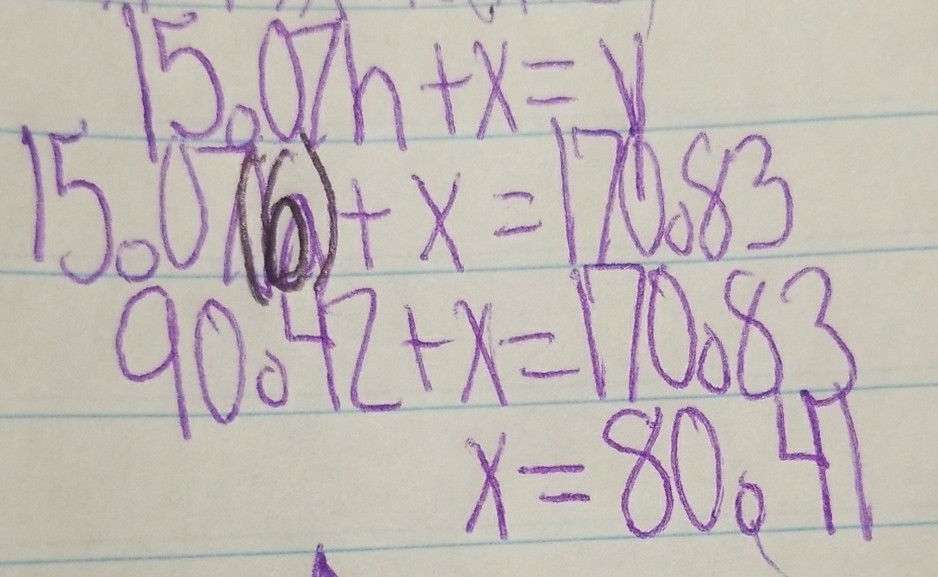 15.07h + x = y
15.07(6) + x = 170.83
90.42 + x = 170.83
x = 80.41